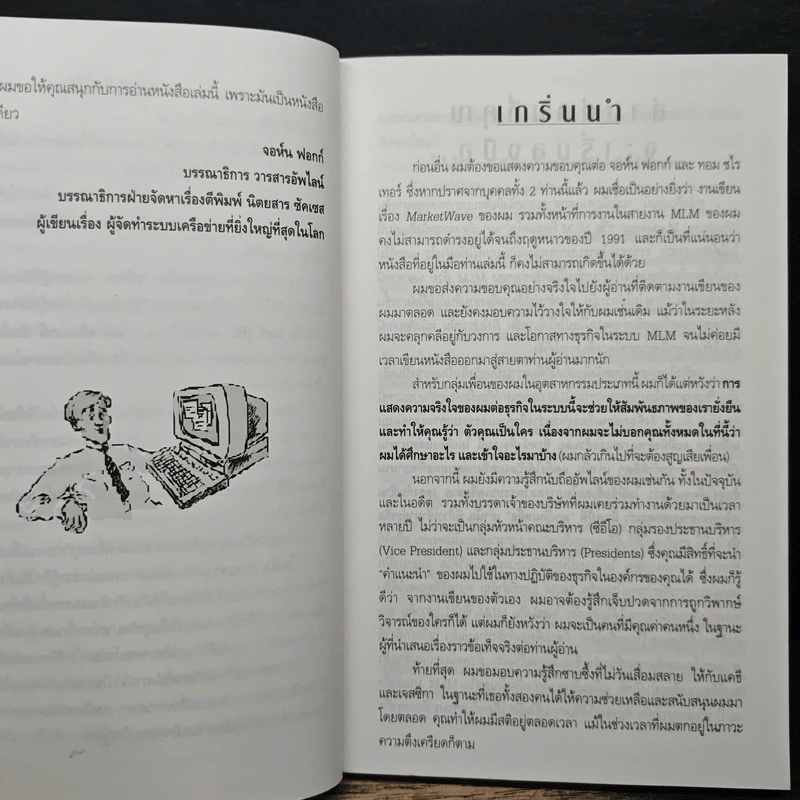 ผมขอให้คุณสนุกกับการอ่านหนังสือเล่มนี้ เพราะมันเป็นหนังสือ
จอห์น ฟอกก์
บรรณาธิการ วารสารอัพไลน์
บรรณาธิการฝ่ายจัดหาเรื่องตีพิมพ์ นิตยสาร ซัคเซส
ผู้เขียนเรื่อง ผู้จัดทำระบบเครือข่ายที่ยิ่งใหญ่ที่สุดในโลก
เกริ่นนำ
ก่อนอื่น ผมต้องขอแสดงความขอบคุณต่อ จอห์น ฟอกก์ และ ทอม ชไร
เทอร์ ซึ่งหากปราศจากบุคคลทั้ง 2 ท่านนี้แล้ว ผมเชื่อเป็นอย่างยิ่งว่า งานเขียน
เรื่อง MarketWave ของผม รวมทั้งหน้าที่การงานในสายงาน MLM ของผม
คงไม่สามารถดำรงอยู่ได้จนถึงฤดูหนาวของปี 1991 และก็เป็นที่แน่นอนว่า
หนังสือที่อยู่ในมือท่านเล่มนี้ ก็คงไม่สามารถเกิดขึ้นได้ด้วย
ผมขอส่งความขอบคุณอย่างจริงใจไปยังผู้อ่านที่ติดตามงานเขียนของ
ผมมาตลอด และยังคงมอบความไว้วางใจให้กับผมเช่นเดิม แม้ว่าในระยะหลัง
ผมจะคลุกคลีอยู่กับวงการ และโอกาสทางธุรกิจในระบบ MLM จนไม่ค่อยมี
เวลาเขียนหนังสือออกมาสู่สายตาท่านผู้อ่านมากนัก
สำหรับกลุ่มเพื่อนของผมในอุตสาหกรรมประเภทนี้ ผมก็ได้แต่หวังว่า การ
แสดงความจริงใจของผมต่อธุรกิจในระบบนี้จะช่วยให้สัมพันธภาพของเรายั่งยืน
และทำให้คุณรู้ว่า ตัวคุณเป็นใคร เนื่องจากผมจะไม่บอกคุณทั้งหมดในที่นี้ว่า
ผมได้ศึกษาอะไร และเข้าใจอะไรมาบ้าง (ผมกลัวเกินไปที่จะต้องสูญเสียเพื่อน)
นอกจากนี้ ผมยังมีความรู้สึกนับถืออัพไลน์ของผมเช่นกัน ทั้งในปัจจุบัน
และในอดีต รวมทั้งบรรดาเจ้าของบริษัทที่ผมเคยร่วมทำงานด้วยมาเป็นเวลา
หลายปี ไม่ว่าจะเป็นกลุ่มหัวหน้าคณะบริหาร (ซีอีโอ) กลุ่มรองประธานบริหาร
(Vice President) และกลุ่มประธานบริหาร (Presidents) ซึ่งคุณมีสิทธิ์ที่จะนำ
“คำแนะนำ” ของผมไปใช้ในทางปฏิบัติของธุรกิจในองค์กรของคุณได้ ซึ่งผมก็รู้
ดีว่า จากงานเขียนของตัวเอง ผมอาจต้องรู้สึกเจ็บปวดจากการถูกวิพากษ์
วิจารณ์ของใครก็ได้ แต่ผมก็ยังหวังว่า ผมจะเป็นคนที่มีคุณค่าคนหนึ่ง ในฐานะ
ผู้ที่นำเสนอเรื่องราวข้อเท็จจริงต่อท่านผู้อ่าน
ท้ายที่สุด ผมขอมอบความรู้สึกซาบซึ้งที่ไม่วันเสื่อมสลาย ให้กับแคธี
และเจสซีกา ในฐานะที่เธอทั้งสองคนได้ให้ความช่วยเหลือและสนับสนุนผมมา
โดยตลอด คุณทำให้ผมมีสติอยู่ตลอดเวลา แม้ในช่วงเวลาที่ผมตกอยู่ในภาวะ
ความตึงเครียดก็ตาม